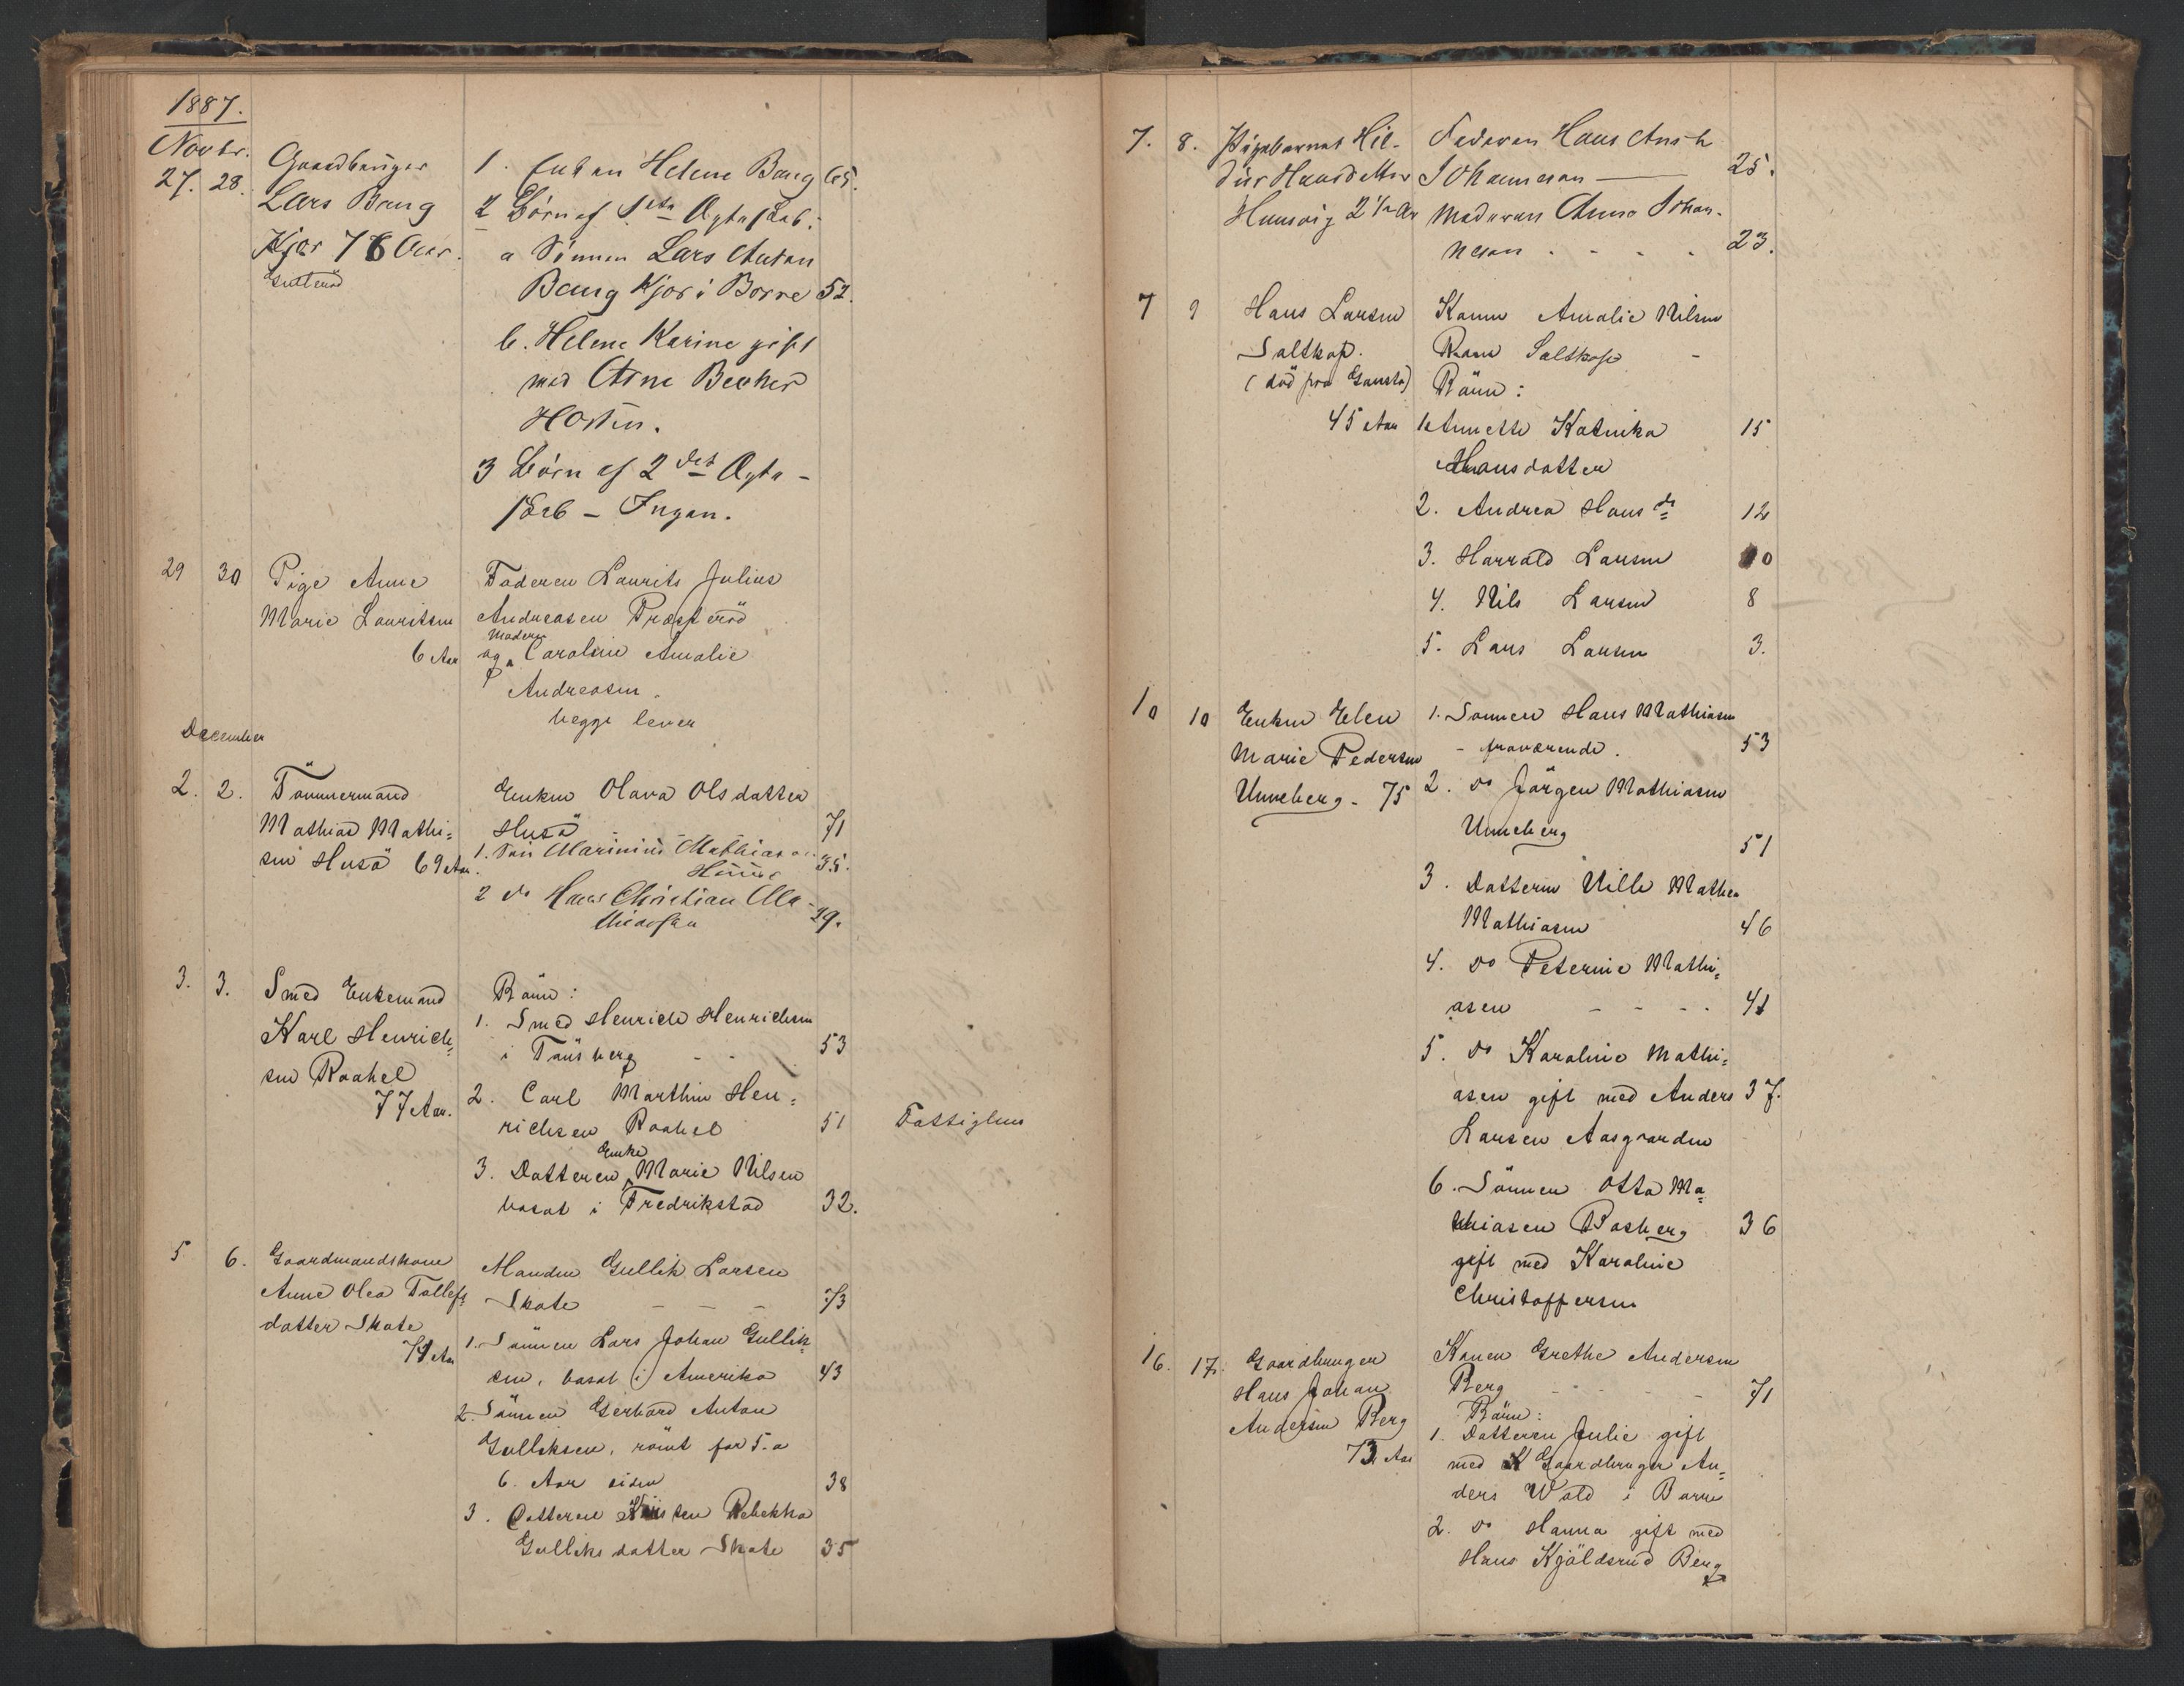 1887.
Novbr.
27. 28. Gaardbruger
Lars Bang
Kjær 76 Aar.
1. Enken Helene Bang 65.
2 Börn af 1ste Ægteskab:
a Sönnen Lars Anton
Bang Kjær i Borre 52.
b. Helene Karine gift
med Arne Becker
Horten.
3 Börn af 2det Ægte-
skab - Ingen.
29 30 Pige Anne
Marie Lauritsen
6 Aar
Faderen Laurits Julius
Andreasen Præsteröd
og Moderen Caroline Amalie
Andreasen.
begge lever
December
2. 2. Tömmermand
Mathias Mathi=
sen Husö 69 Aar.
Enken Olava Olsdatter
Husö 71
1. Sön Marinius Mathias 35.
2 do Hans Christian Ma-
thiassen 29.
3. 3. Smed Enkemand
Karl Henrich=
sen Raahel
77 Aar.
Börn:
1. Smed Henrich Henrichsen
i Tönsberg - - 53
2. Carl Marthin Hen=
richsen Raahel 51 Fattiglem
3. Datteren Enke Marie Nilsen
bosat i Fredrikstad 32.
5 6. Gaardmandskone
Anne Olea Tollefs
datter Skote
71 Aar
Manden Gullik Larsen
Skote - - - 73
1. Sönnen Lars Johan Gullik=
sen, bosat i Amerika 43
2. Sönnen Gerhard Anton
Gulliksen, römt for 5. a
6. Aar siden 38
3. Datteren Kristen Rebekka
Gulliksdatter Skote 35
7. 8. Pigebarnet Hil-
dur Hansdatter
Husvig 2 1/2 Aar
Faderen Hans Anst
Johannesen 25.
Moderen Anna Johan-
nesen . - . . 23.
7 9 Hans Larsen
Saltkop.
(död fra Gausta)
45 Aar
Konen Amalie Nilsen
Ramm Saltkop -
Börn:
1 Annette Katinka 15
Hansdatter
2. Andrea Hansdr 12
3. Harrald Larsen 10
4. Nils Larsen 8
5. Lars Larsen 3.
10 10 Enken Elen
Marie Pedersen
Unneberg - 75
1. Sönnen Hans Mathiasen
- fraværende. 53
2. do Jörgen Mathiasen
Unneberg 51
3. Datteren Ville Mathea
Mathiasen 46
4. do Peterine Mathi=
asen - - - . 41
5. do Karoline Mathi=
asen gift med Anders 37.
Larsen Aasgaarden
6. Sönnen Otto Ma=
thiasen Basberg 36
gift med Karoline
Christoffersen
16. 17. Gaardbruger
Hans Johan
Andersen Berg
73 Aar
Konen Grethe Andersen
Berg - - - - 71
Börn:
1. Datteren Julie gift
med Gaardbruger An=
ders Wold i Borre
2. do Hanna gift med
Hans Kjöldsrud Berg